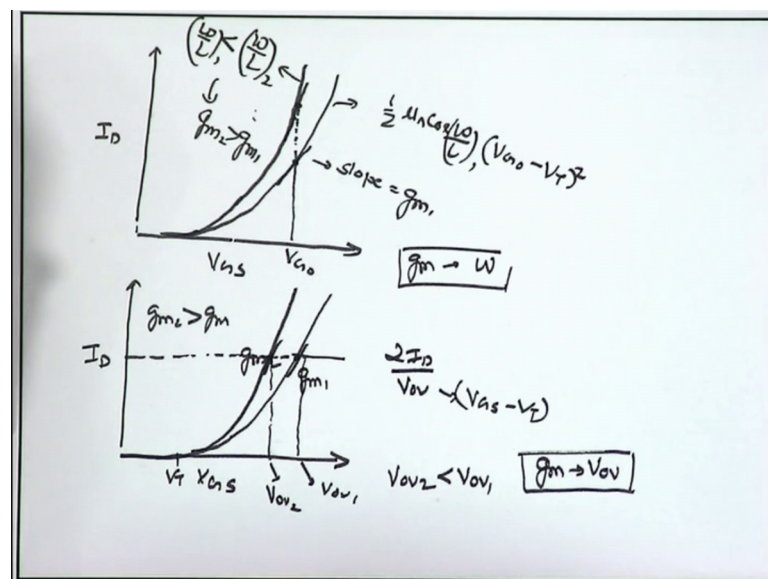 (W/L)₁ < (W/L)₂
gm₂ > gm₁
I_D
½ μnCox (W/L)₁ (V_G₀ - V_T)²
slope = gm₁
V_GS
V_G₀
gm → W
gm₂ > gm
I_D
gm₂
gm₁
2I_D
V_OV - (V_GS - V_T)
V_T V_GS
V_OV₂
V_OV₁
V_OV2 < V_OV₁
gm → V_OV